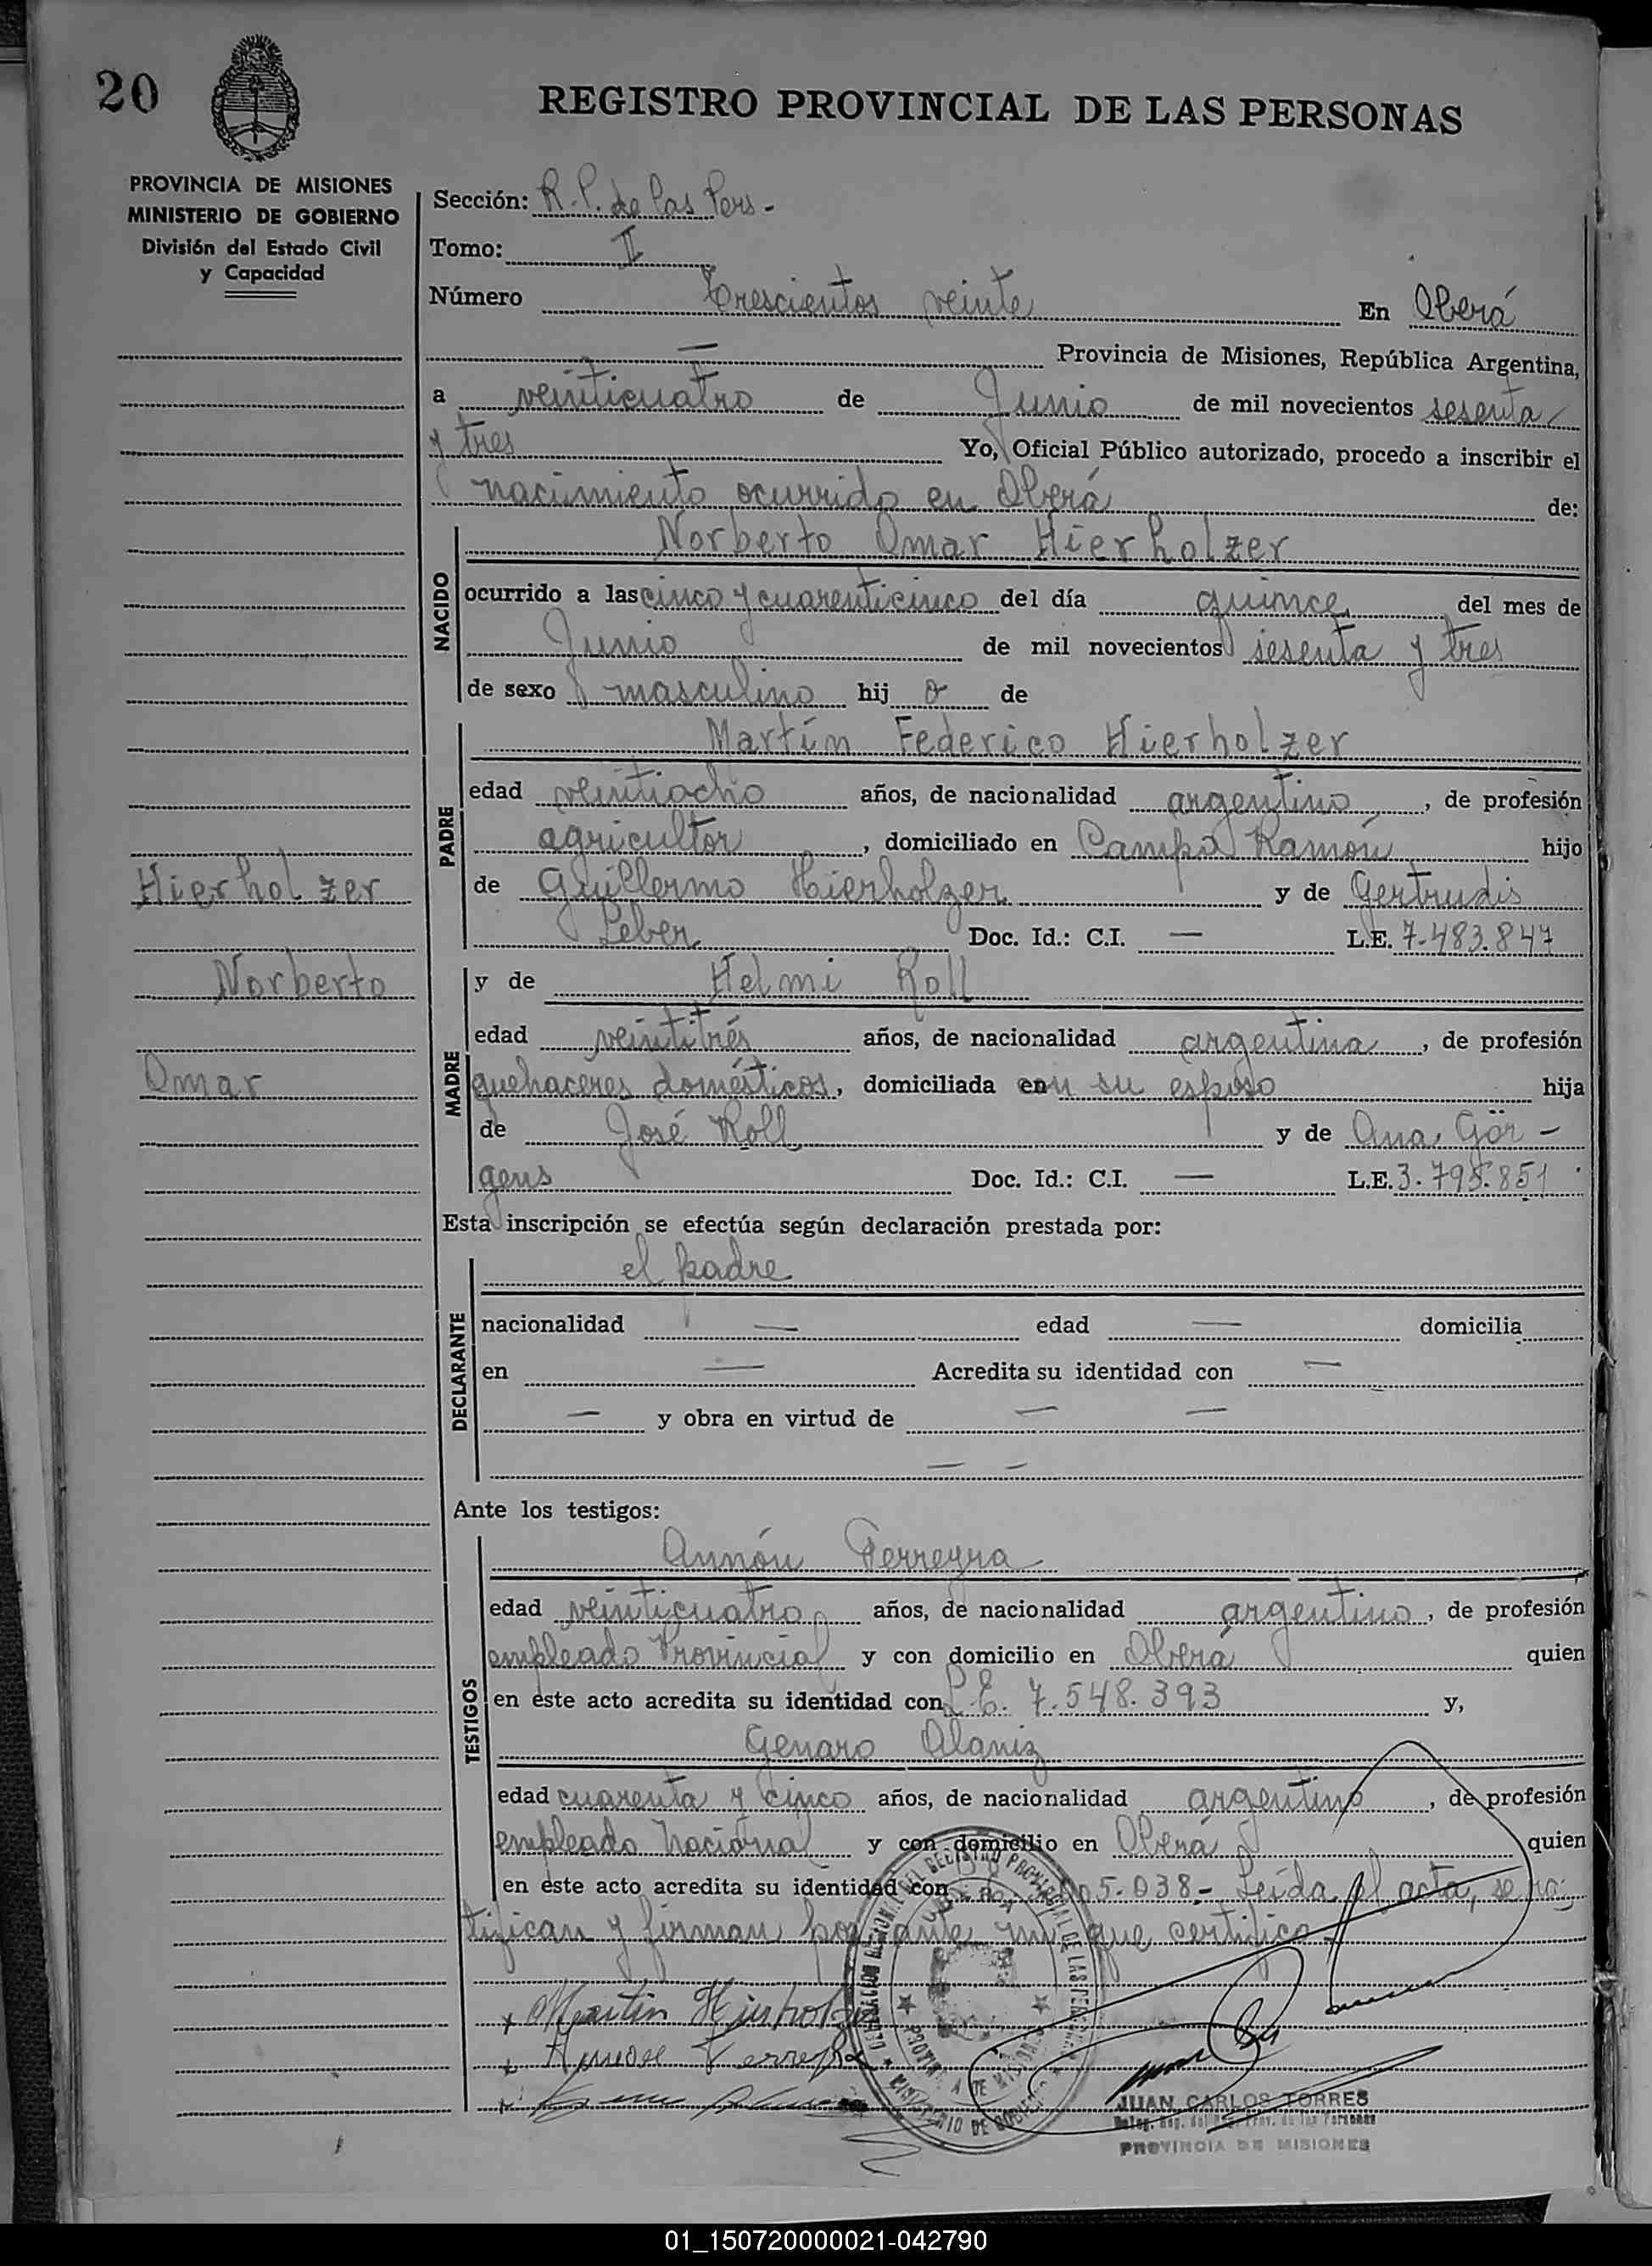 20
REGISTRO PROVINCIAL DE LAS PERSONAS
PROVINCIA DE MISIONES
MINISTERIO DE GOBIERNO
División del Estado Civil
y Capacidad
Sección: R. P. de las Pers -
Tomo: II
Número Trescientos veinte En Oberá
— Provincia de Misiones, República Argentina,
a veinticuatro de Junio de mil novecientos sesenta
y tres Yo, Oficial Público autorizado, procedo a inscribir el
nacimiento ocurrido en Oberá de:
NACIDO
Norberto Omar Hierholzer
ocurrido a las cinco y cuarenticinco del día quince del mes de
Junio de mil novecientos sesenta y tres
de sexo masculino hijo de
PADRE
Martín Federico Hierholzer
edad veintiocho años, de nacionalidad argentino, de profesión
agricultor, domiciliado en Campo Ramón hijo
Hierholzer
de Guillermo Hierholzer y de Gertrudis
Leber Doc. Id.: C.I. — L.E. 7.483.847
Norberto
MADRE
y de Helmi Roll
edad veintitrés años, de nacionalidad argentina, de profesión
Omar
quehaceres domésticos, domiciliada en su esposo hija
de José Roll y de Ana Gör -
gens Doc. Id.: C.I. — L.E. 3.795.851
Esta inscripción se efectúa según declaración prestada por:
DECLARANTE
el padre
nacionalidad — edad — domicilia
en — Acredita su identidad con —
— y obra en virtud de — —
— —
Ante los testigos:
TESTIGOS
Annón Ferreyra
edad veinticuatro años, de nacionalidad argentino, de profesión
empleado Provincial y con domicilio en Oberá quien
en este acto acredita su identidad con L.E. 7.548.393 y,
Genaro Alaniz
edad cuarenta y cinco años, de nacionalidad argentino, de profesión
empleado nacional y con domicilio en Oberá quien
en este acto acredita su identidad con 5.038.- Leída el acta, se ra-
tifican y firman por ante mí que certifico.
x Martin Hierholzer
x Ferreyra
x
JUAN CARLOS TORRES
PROVINCIA DE MISIONES
01_150720000021-042790